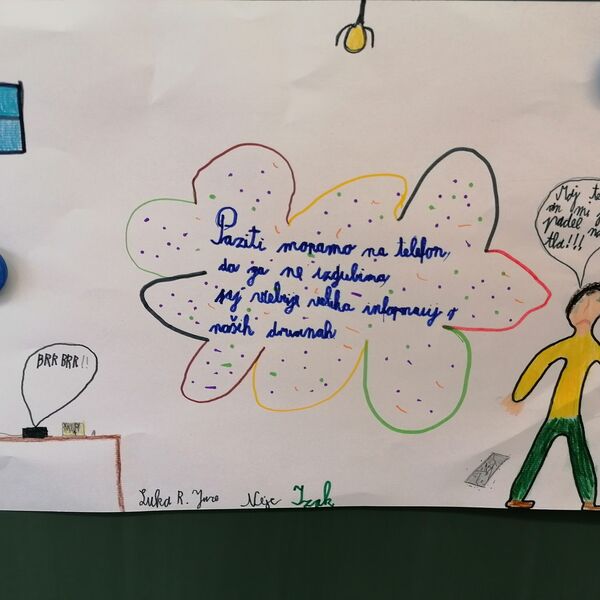 Paziti moramo na telefon,
da ga ne izgubimo,
saj vsebuje veliko informacij o
naših družinah
Moj
mi
padel na
tla!!!
BRR BRR!!
Luka R. Nejc Izak